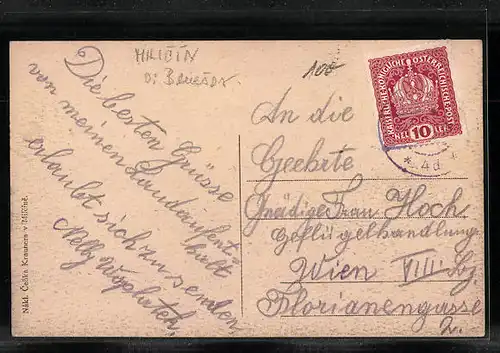 MILIČÍN
o: Benešov.
100
Die besten Grüsse
von meinen Landaufent-
halt
erlaubt sich zu senden
Nelly
An die
Geehrte
Gnädige Frau Hoch
Geflügelhandlung
Wien VIII. Bz.
Florianengasse
2.
KAISERLICHE KÖNIGLICHE ÖSTERREICHISCHE POST
HELLER 10
* 4d *
Nákl. Čeňka Kramera v Miličíně.